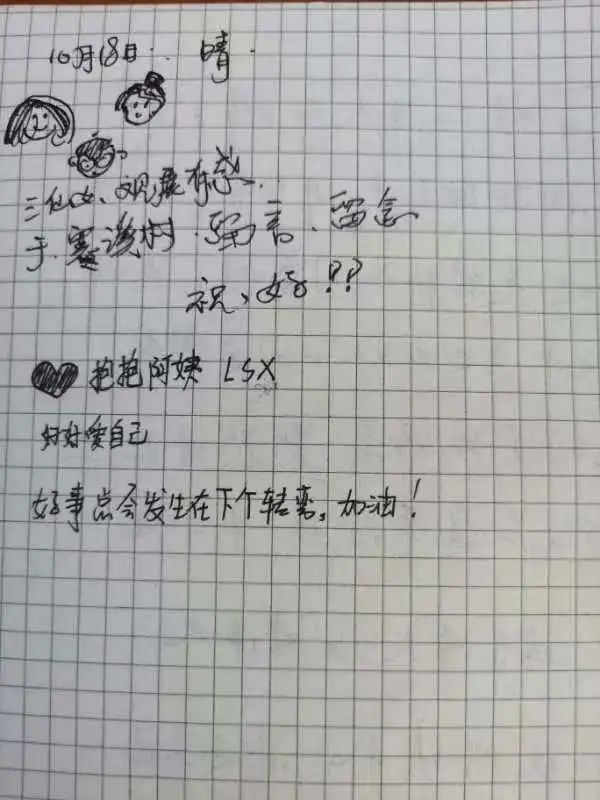 10月18日. 晴.
三仙女、观展有感.
于. 留言. 留念
祝、好??
抱抱阿姨 LSX
好好爱自己
好事总会发生在下个转弯。加油!